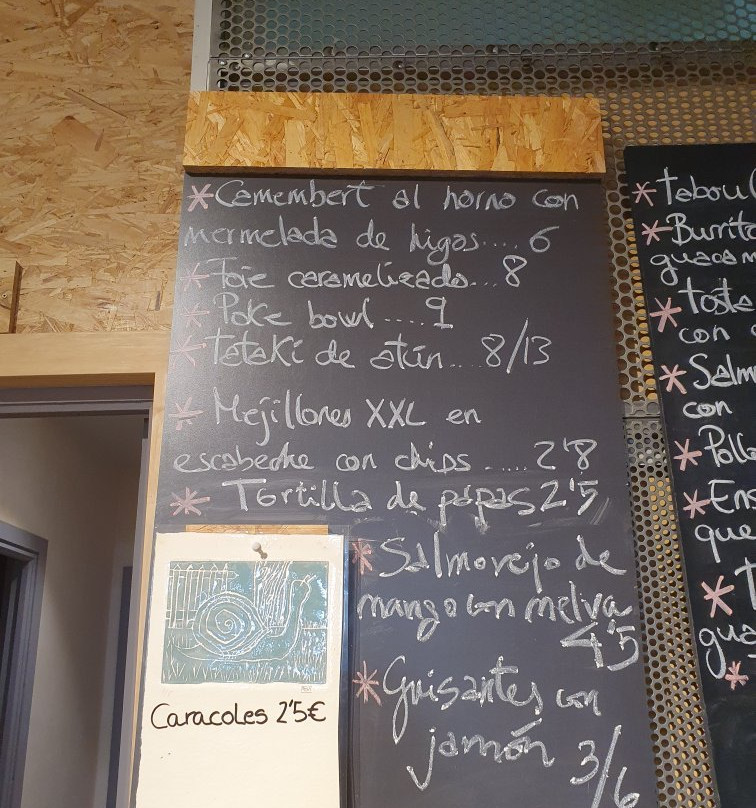 *Camembert al horno con
mermelada de higos.... 6
*Foie caramelizado... 8
*Poke bowl..... 9
*Tataki de atún... 8/13
*Mejillones XXL en
escabeche con chips ..... 2'8
*Tortilla de papas 2'5
*Salmorejo de
mango con melva
4'5
*Guisantes con
jamón 3/6
Caracoles 2'5€
*tabou
*Burrit
guacam
*tosta
con
*Salm
con
*Poll
*En
que
*
gua
*